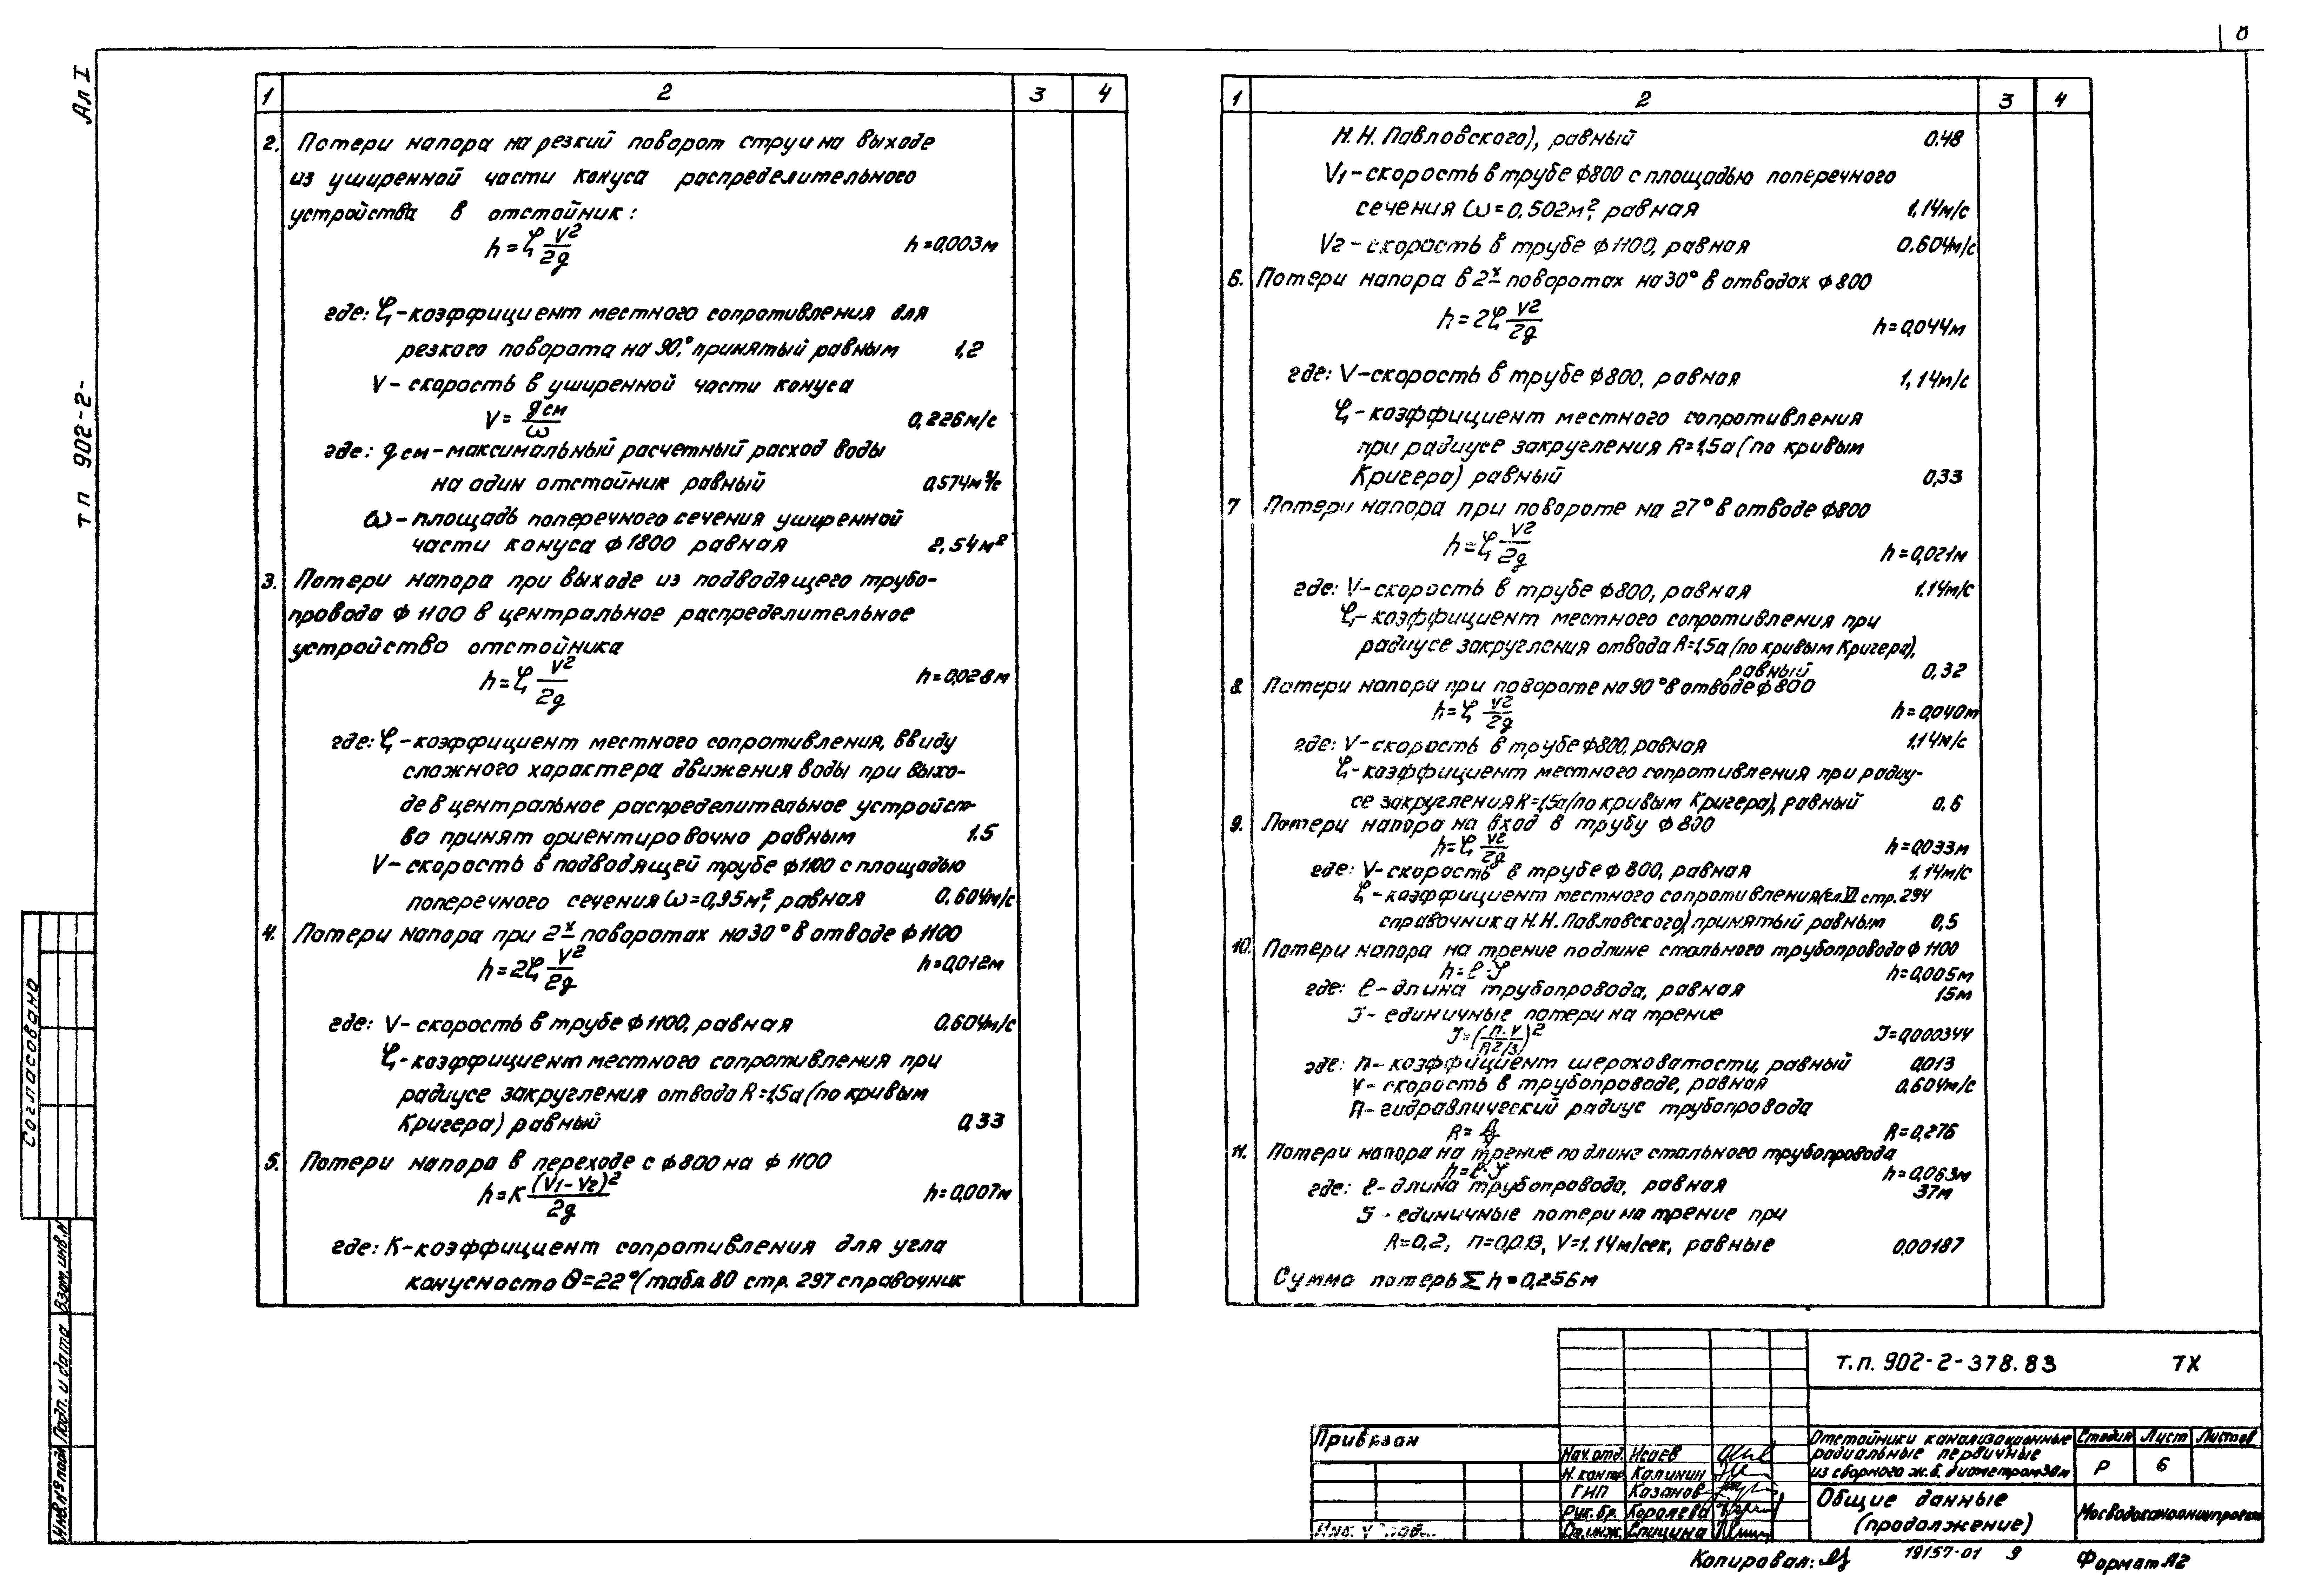 Ал I
тп 902-2-
1 2 3 4
2. Потери напора на резкий поворот струи на выходе
из уширенной части конуса распределительного
устройства в отстойник:
h=ξ V²/2g h=0,003м
где: ξ-коэффициент местного сопротивления для
резкого поворота на 90,° принятый равным 1,2
V-скорость в уширенной части конуса
V= qсм/ω 0,226м/с
где: qсм-максимальный расчетный расход воды
на один отстойник равный 0,574м³/с
ω-площадь поперечного сечения уширенной
части конуса ф1800 равная 2,54м²
3. Потери напора при выходе из подводящего трубо-
провода ф 1100 в центральное распределительное
устройство отстойника
h=ξ V²/2g h=0,028м
где: ξ-коэффициент местного сопротивления, ввиду
сложного характера движения воды при выхо-
де в центральное распределительное устройст-
во принят ориентировочно равным 1.5
V-скорость в подводящей трубе ф1100 с площадью
поперечного сечения ω=0,95м², равная 0,604м/с
4. Потери напора при 2х поворотах на 30° в отводе ф 1100
h=2ξ V²/2g h=0,012м
где: V-скорость в трубе ф1100, равная 0.604м/с
ξ-коэффициент местного сопротивления при
радиусе закругления отвода R=1,5а (по кривым
Кригера) равный 0,33
5. Потери напора в переходе с ф800 на ф 1100
h=к (V1-V2)²/2g h=0,007м
где: К-коэффициент сопротивления для угла
конусносто θ=22° (табл. 80 стр. 297 справочник
1 2 3 4
Н.Н. Павловского), равный 0.48
V1-скорость в трубе ф800 с площадью поперечного
сечения ω=0,502м², равная 1,14м/с
V2-скорость в трубе ф 1100, равная 0.604м/с
6. Потери напора в 2х поворотах на 30° в отводах ф 800
h=2ξ V²/2g h=0,044м
где: V-скорость в трубе ф800, равная 1,14м/с
ξ-коэффициент местного сопротивления
при радиусе закругления R=1,5а (по кривым
Кригера) равный 0,33
7 Потери напора при повороте на 27° в отводе ф800
h=ξ V²/2g h=0,021м
где: V-скорость в трубе ф800, равная 1.14м/с
ξ-коэффициент местного сопротивления при
радиусе закругления отвода R=1,5а (по кривым Кригера),
равный 0,32
8. Потери напора при повороте на 90° в отводе ф800
h=ξ V²/2g h=0,040м
где: V-скорость в трубе ф800, равная 1,14м/с
ξ-коэффициент местного сопротивления при радиу-
се закругления R=1,5а (по кривым Кригера), равный 0.6
9. Потери напора на вход в трубу ф 800
h=ξ V²/2g h=0,033м
где: V-скорость в трубе ф 800, равная 1.14м/с
ξ-коэффициент местного сопротивления (гл. VI стр. 294
справочника Н.Н. Павловского), принятый равным 0,5
10. Потери напора на трение по длине стального трубопровода ф 1100
h=ℓ·J h=0,005м
где: ℓ-длина трубопровода, равная 15м
J- единичные потери на трение
J=(n·V/R2/3)² J=0,000344
где: n-коэффициент шероховатости, равный 0,013
V-скорость в трубопроводе, равная 0.604м/с
R-гидравлический радиус трубопровода
R= R=0,276
11. Потери напора на трение по длине стального трубопровода
h=ℓ·J h=0,063м
где: ℓ-длина трубопровода, равная 37м
J-единичные потери на трение при
R=0,2, n=0,013, V=1.14м/сек, равные 0,00187
Сумма потерь Σh=0,256м
Согласовано
Взам. инв. №
Подп. и дата
Инв. № подл
т.п. 902-2-378.83 ТХ
Привязан
Нач. отд. Исаев
Н. контр. Калинин
ГИП Казанов
Рук. бр. Королева
Ст. инж. Спицина
Отстойники канализационные
радиальные первичные
из сборного ж.б. диаметром 30м
Стадия Лист Листов
Р 6
Общие данные
(продолжение)
Мосводоканалниипроект
Копировал: 19157-01 9 Формат А2